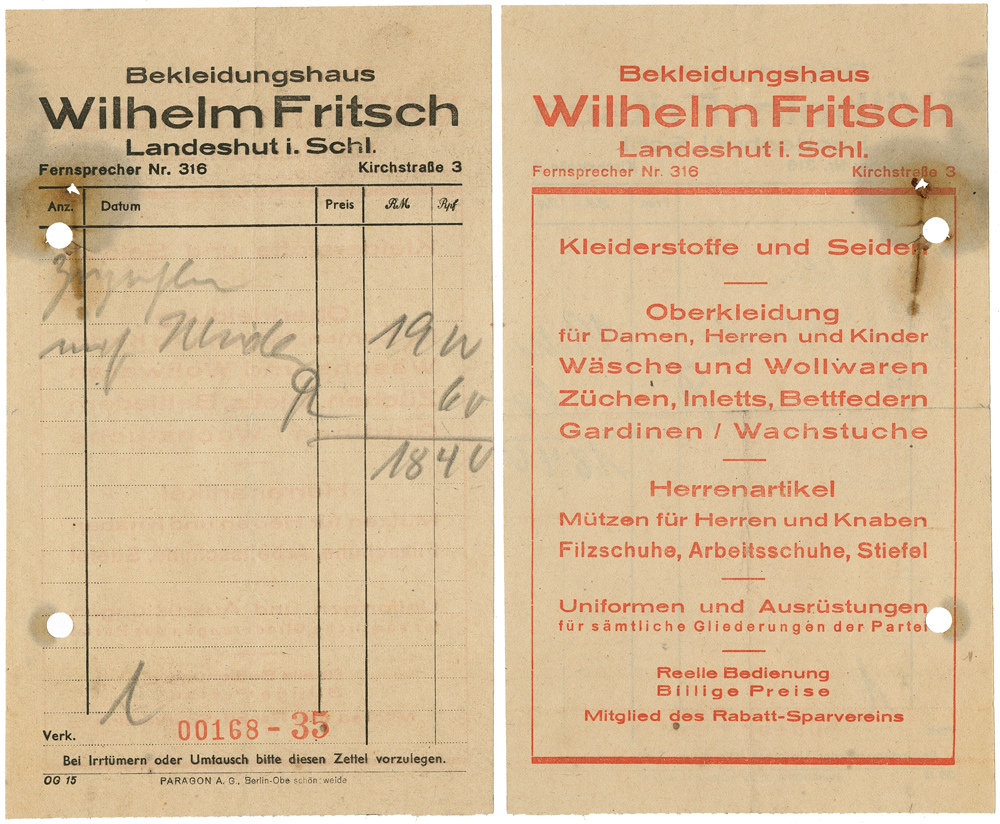 Bekleidungshaus
Wilhelm Fritsch
Landeshut i. Schl.
Fernsprecher Nr. 316 Kirchstraße 3
Anz. Datum Preis RM Rpf
19
60
18 40
Verk. 00168 - 35
Bei Irrtümern oder Umtausch bitte diesen Zettel vorzulegen.
OG 15 PARAGON A. G., Berlin-Oberschöneweide
Bekleidungshaus
Wilhelm Fritsch
Landeshut i. Schl.
Fernsprecher Nr. 316 Kirchstraße 3
Kleiderstoffe und Seiden
Oberkleidung
für Damen, Herren und Kinder
Wäsche und Wollwaren
Züchen, Inletts, Bettfedern
Gardinen / Wachstuche
Herrenartikel
Mützen für Herren und Knaben
Filzschuhe, Arbeitsschuhe, Stiefel
Uniformen und Ausrüstungen
für sämtliche Gliederungen der Partei
Reelle Bedienung
Billige Preise
Mitglied des Rabatt-Sparvereins